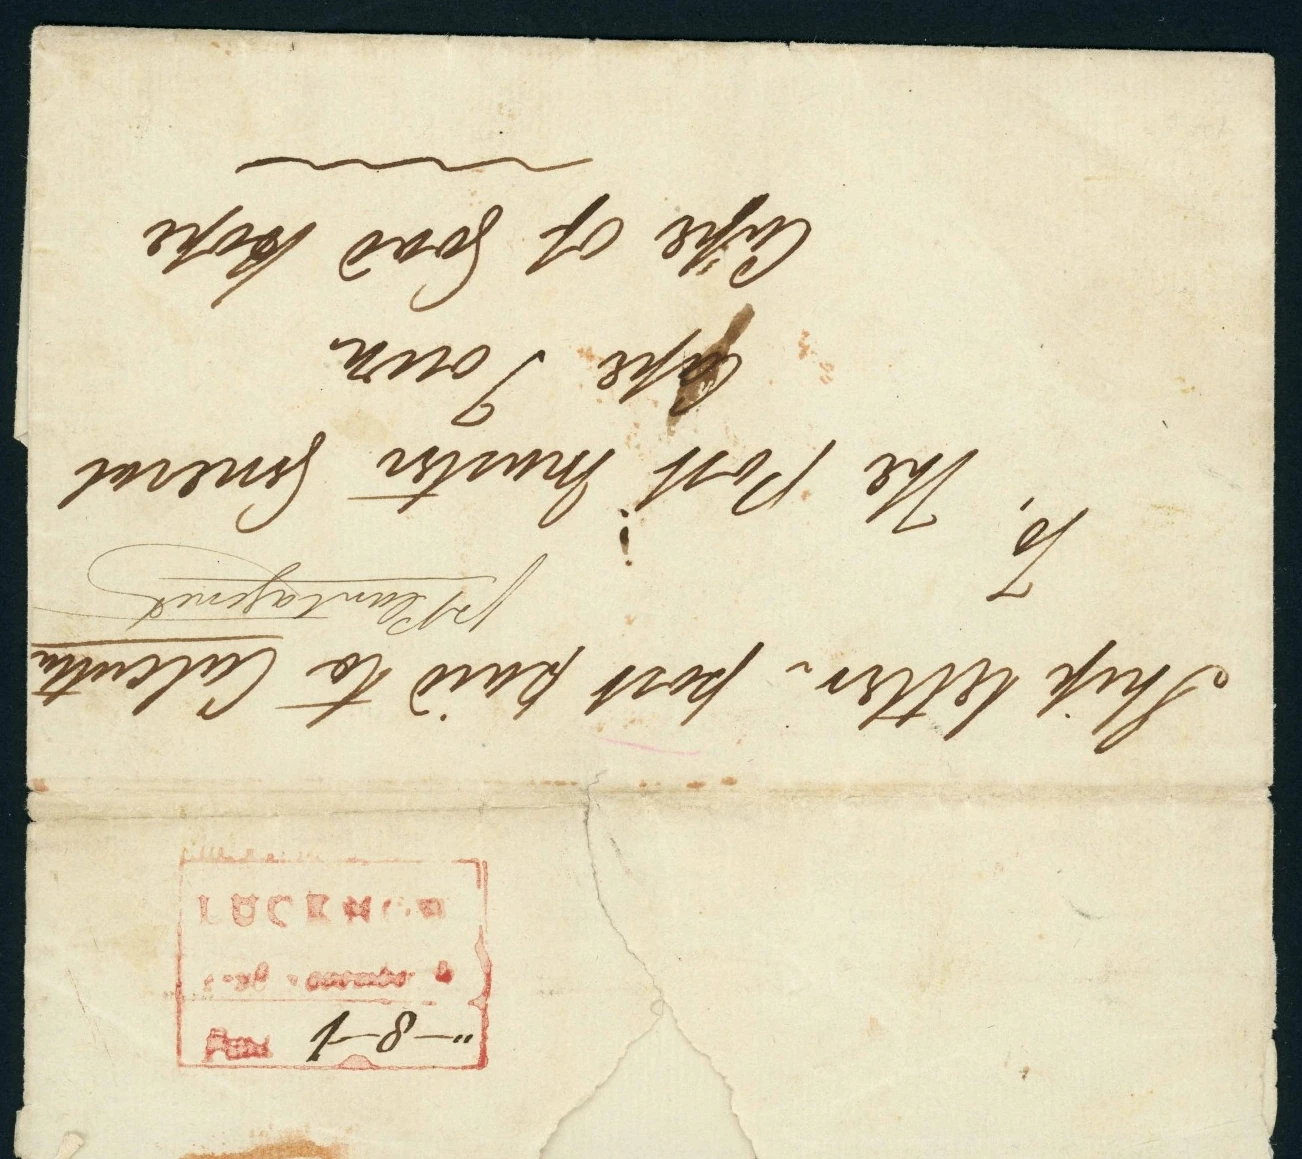 Ship letter. post paid to Calcutta
pr Plantagenet
To, The Post Master General
Cape Town
Cape of Good Hope
LUCKNOW
Paid "-8-1